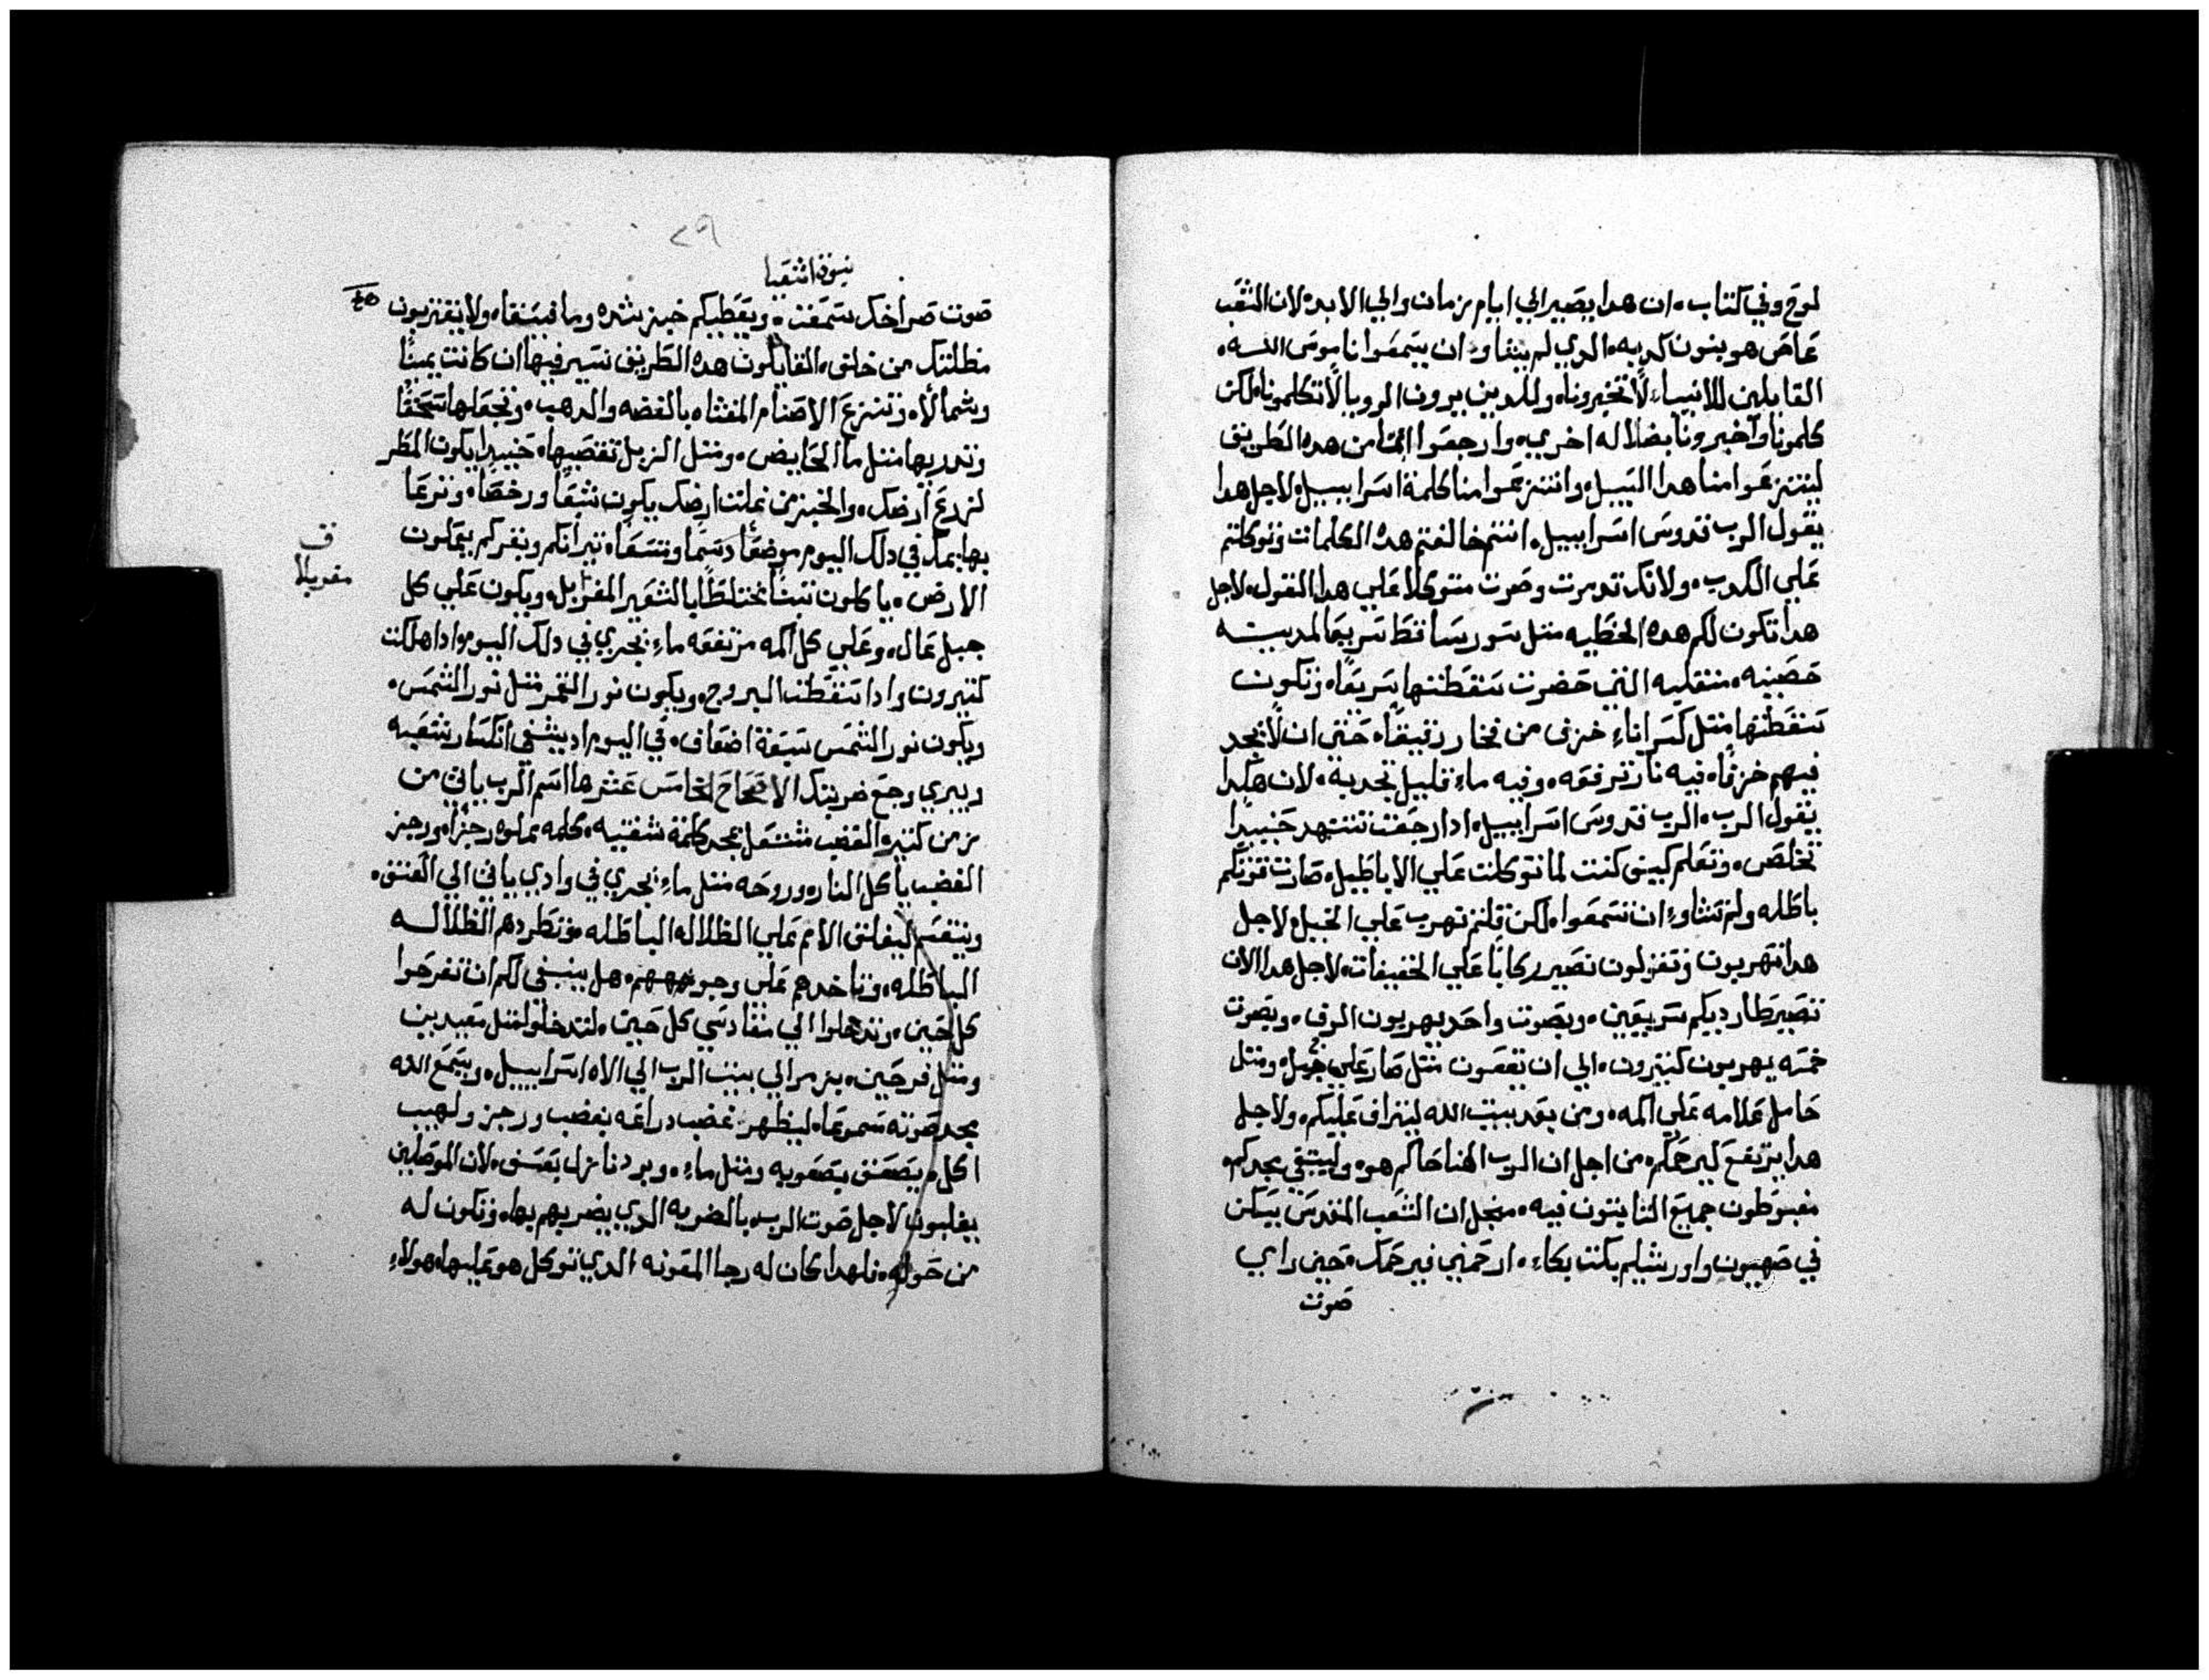 لوح وفي كتاب. ان هدا يصير الي ايام زمان والي الابد. لان الشعب
عاصى هو بنون كدبه. الدي لم يشاو ان يسمعوا ناموس الله.
القايلين للانبياء لا تخبرونا. وللدين يرون الرويا لا تكلمونا. لكن
كلمونا واخبرونا بضلاله اخري. وارجعوا امنا من هده الطريق
لينتزعوا منا هدا السبيل. وانتزعوا منا كلمة اسراييل. لاجل هدا
يقول الرب قدوس اسراييل. انتم خالفتم هده الكلمات وتوكلتم
علي الكدب. ولانك تدمرت وصرت متوكلا علي هدا القول. لاجل
هدا تكون لكم هده الخطيه متل سور ساقط سريعا لمدينه
حصينه. منقليه التي حضرت سقطتها سريعا. وتكون
سقطتها متل كسر اناء خزفى من فخار رقيقا. حتى ان لا تجد
فيهم خزفا. فيه نار ترفعه. وفيه ماء قليل تجديه. لان هكدا
يقول الرب. الرب قدوس اسراييل. ادا رجعت تتنهد حينيدا
تخلص. وتعلم كيف كنت لما توكلت علي الاباطيل. صارت قوتكم
باطله ولم تشاوء ان تسمعوا. لكن قلتم نهرب علي الخيل. لاجل
هدا تهربون وتقولون نصير ركابا علي الخفيفات. لاجل هدا الان
تصير طارديكم سريعين. وبصوت واحد يهربون الوف. وبصوت
خمسه يهربون كتيرون. الي ان تبقون متل صار علي جبل. ومتل
حامل علامه علي اكمه. ومن بعد بيت الله ليتراف عليكم. ولاجل
هدا يرتفع ليرحمكم. من اجل ان الرب الهنا حاكم هو. وليتقي مجدكم.
مغبوطون جميع التابتون فيه. منجل ان الشعب المقدس يسكن
في صهيون واورشليم بكت بكاء. ارحمني فيرحمك. حين راي
صوت
٢٩
نبوة اشعيا
صوت صراخك سمعت. ويعطيكم خبز شده وما فيسقا. ولا يقتربون
مظلتك من خلق. القايلون هده الطريق نسير فيها ان كانت يمينا
وشمالا. وتنزع الاصنام المغشاه بالفضه والدهب. وتجعلها سحقا
وتدريها متل ما الحايض. ومتل الزبل تقصيها. حينيدا يكون المطر
لزرع ارضك. والخبز من غلت ارضك يكون شبعا ورخصا. وترعا
بهايمك في دلك اليوم موضعا دسما وتسعا. تيرانكم وبقركم يعملون
الارض. ياكلون تبنا مختلطا بالشعير المغربل. ويكون علي كل
ف
مغربلا
جبل عال. وعلي كل اكمه مرتفعه ماء يجري في دلك اليوم. وادا هلكت
كتيرون وادا سقطت البروج. ويكون نور القمر متل نور الشمس.
ويكون نور الشمس سبعة اضعاف. في اليوم اد يشفي انكسار شعبه
ويبري وجع ضربتك الاصحاح الخامس عشر ها اسم الرب ياتي من
زمن كتيره الغضب مشتعل بمجد كلمة شفتيه. كلمه مملوه رجزا. ورجز
الغضب ياكل النار. وروحه متل ماء يجري في وادي ياتي الي العنق.
وينقسم ليقلق الامم علي الظلاله الباطله. وتطردهم الظلاله
الباطله. وتاخدهم علي وجوههم. هل ينبغى لكم ان تفرحوا
كل حين. وتدخلوا الي مقادسي كل حين. لتدخلوا متل معيدين
ومتل فرحين. بزمر الي بيت الرب الي الاه اسراييل. ويسمع الله
مجد صوته سموعا. ليظهر غضب دراعه بغضب ورجز ولهيب
اكل. يصعق بصعوبه ومتل ماء. وبرد نازل بعسف. لان الموصلين
يغلبون لاجل صوت الرب. بالضربه الدي يضربهم بها. وتكون له
من حوله. فلهدا كان له رجا المعونه الدي توكل هو عليها. هولاء